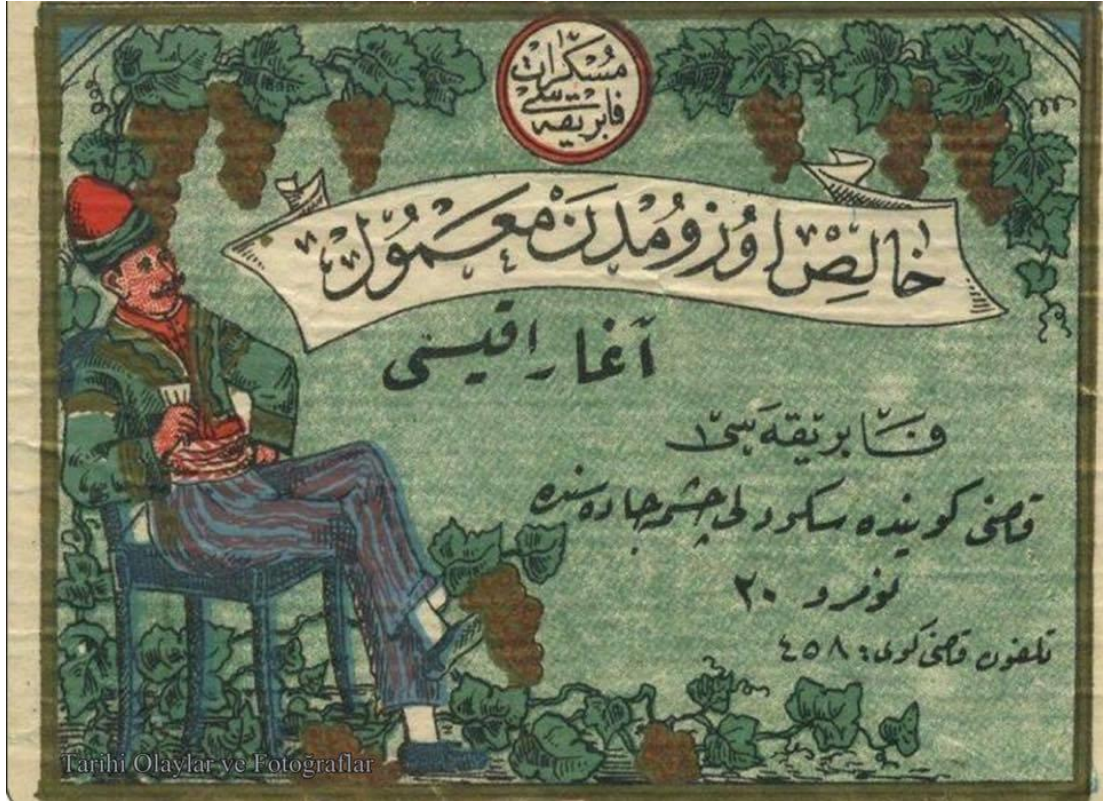 مسكرات
فابريقه سی
خالص اوزومدن معمول
آغا راقيسی
فابريقه سی
قاضی كوينده سكودلی چشمه جاده سنده
نومرو ٢٠
تلفون قاضی كوی: ٤٥٨
Tarihi Olaylar ve Fotoğraflar